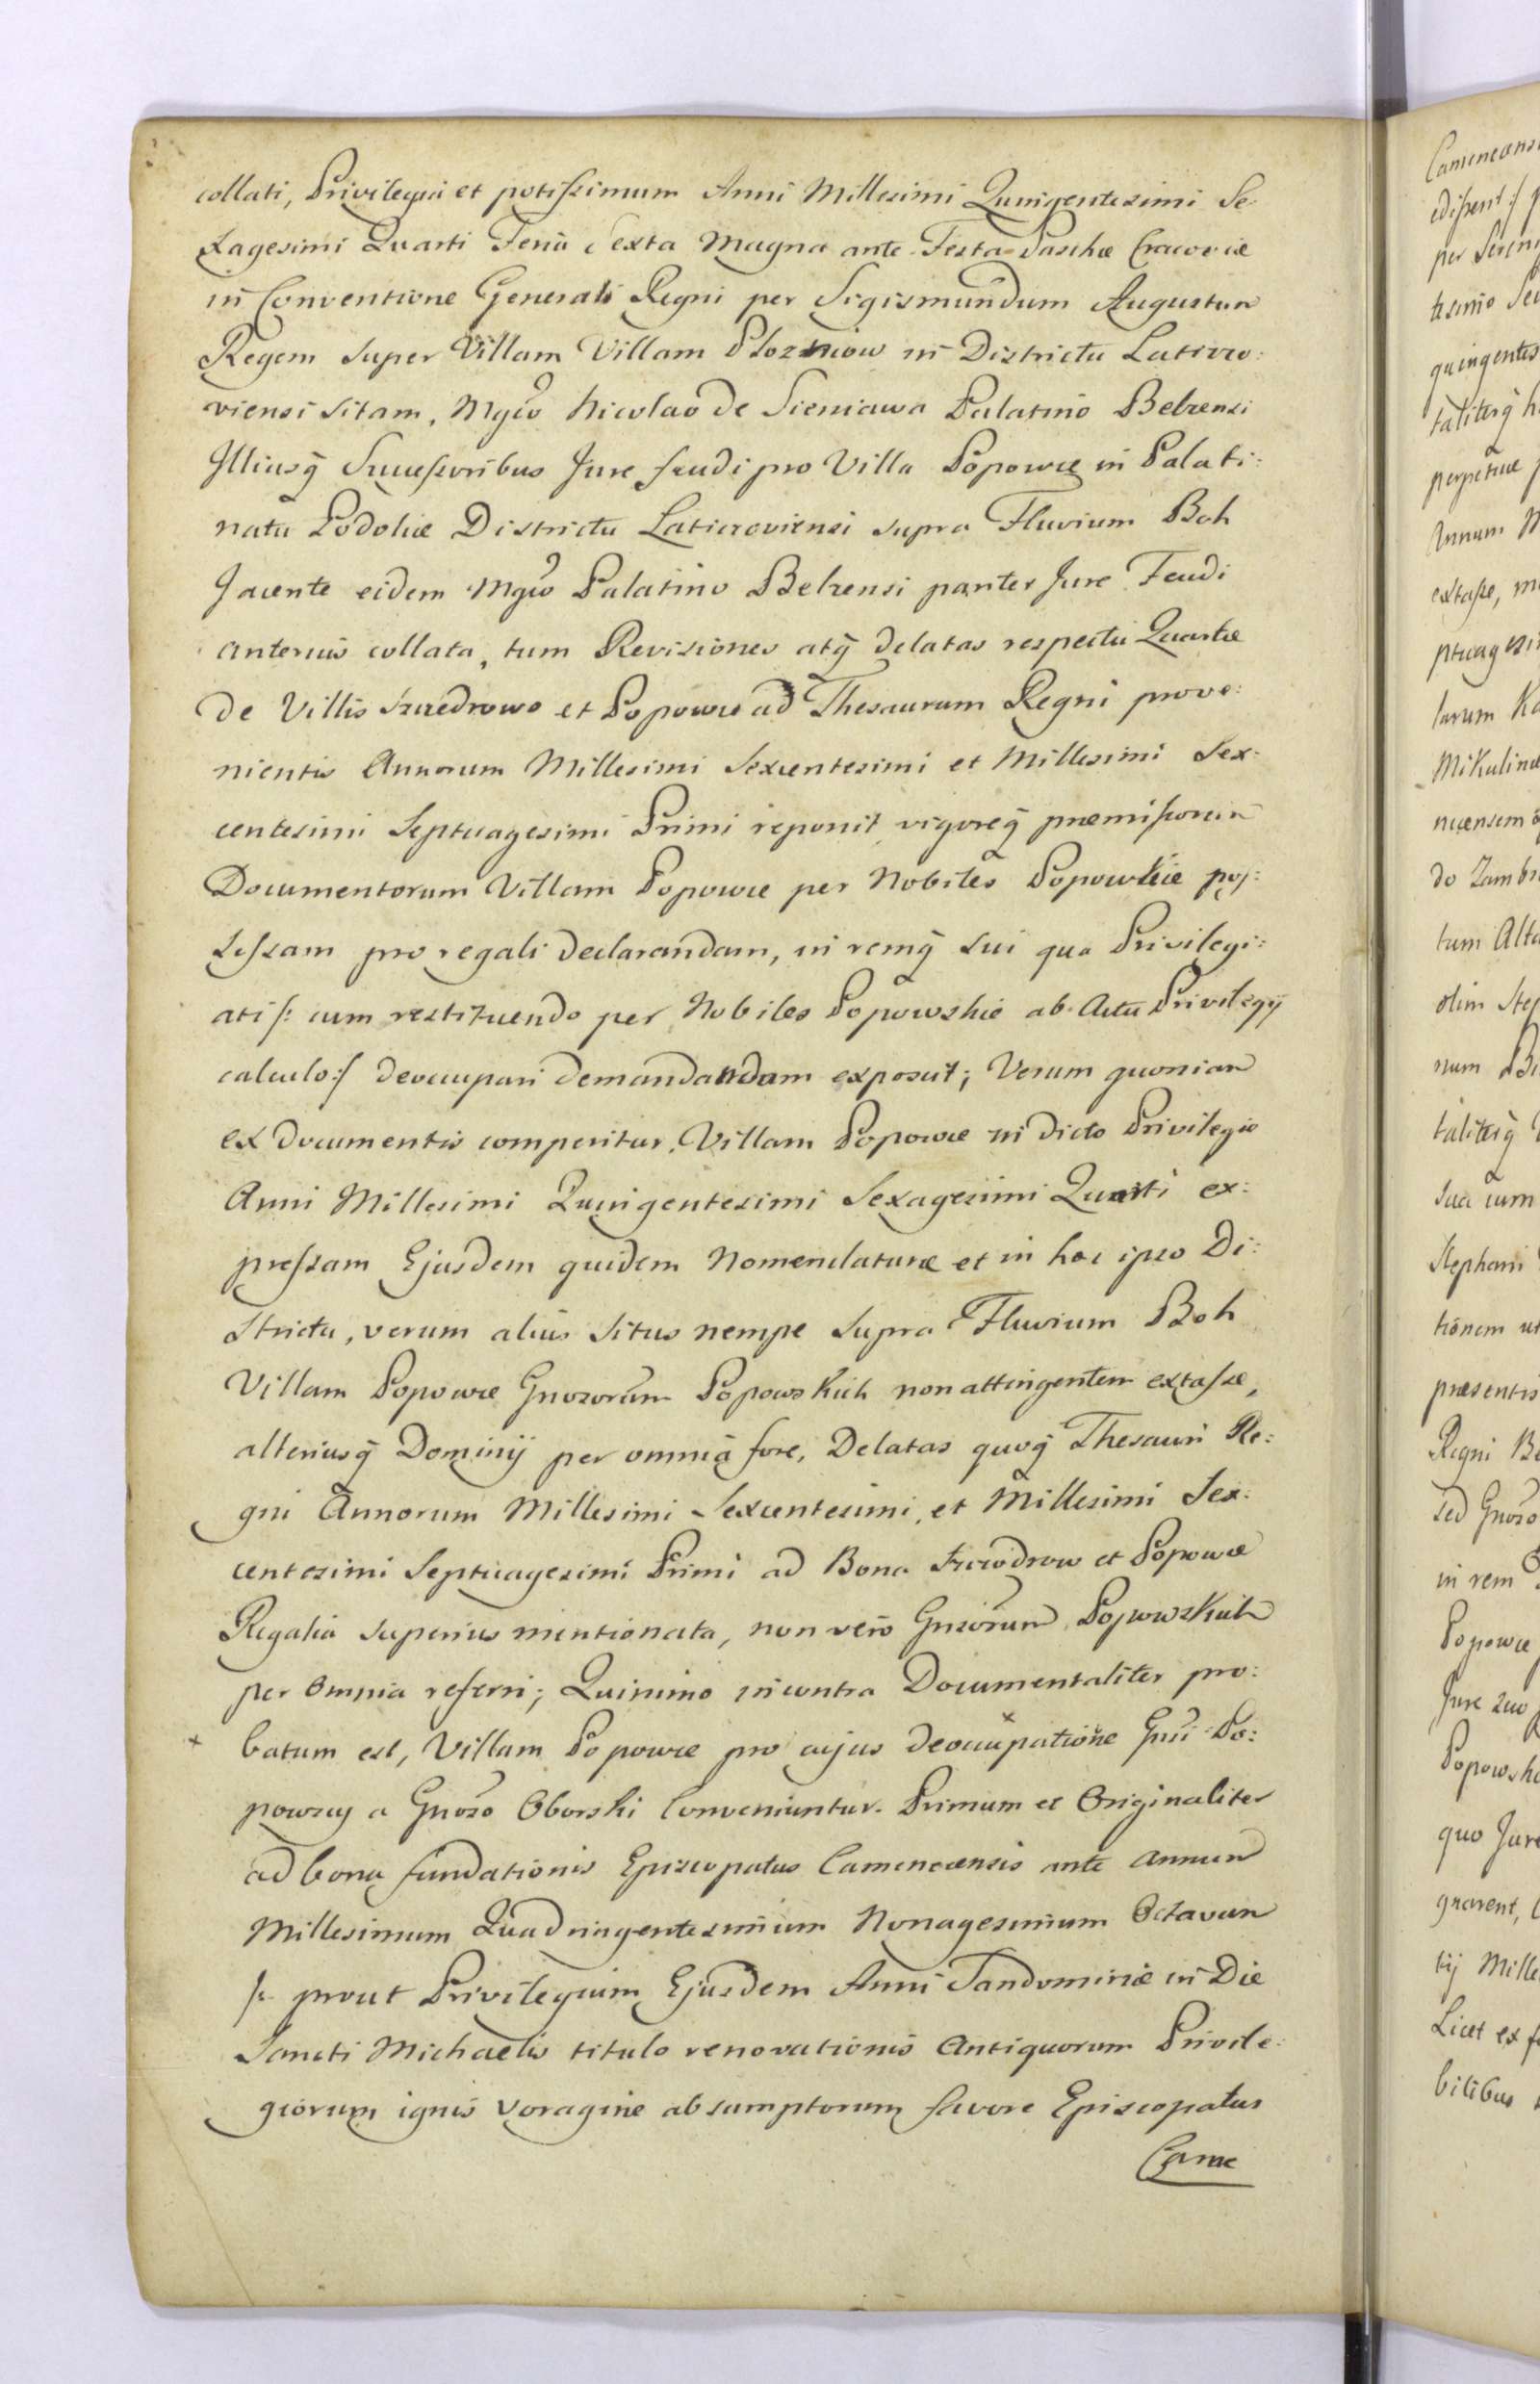 collati, Privilegia et potissimum Anni Millesimi Quingentesimi Se-
xagesimi Quarti Feria Sexta Magna ante Festa Paschæ Cracoviæ
in Conventione Generali Regni per Sigismundum Augustum
Regem super Villam Villam in Districtu Laticzo:
viensi sitam, Mgco Nicolao de Sieniawa Palatino Belzensi
Illiusq̃ Successoribus Jure feudi pro Villa Popowce in Palati:
natu Podoliæ Districtu Laticzoviensi supra Fluvium Boh
Jacente eidem Mgco Palatino Belzensi pariter Jure Feudi
anterius collata, tum Revisiones atq̃ delatas respectu Quartæ
de Villis et Popowce ad Thesaurum Regni prove:
nientis Annorum Millesimi Sexcentesimi et Millesimi Sex:
centesimi Septuagesimi Primi reponit, vigoreq̃ præmissorum
Documentorum Villam Popowce per Nobiles Popowskie pos:
sessam pro regali declarandam, in remq̃ sui qua Privilegi:
ati /: cum restituendo per Nobiles Popowskie ab Actu Privilegij
calculo :/ deoccupari demandandam exposcit; Verum quoniam
ex documentis comperitur, Villam Popowce in dicto Privilegio
Anni Millesimi Quingentesimi Sexagesimi Quarti ex:
pressam Ejusdem quidem Nomenclaturæ et in hoc ipso Di:
strictu, verum alius situs nempe supra Fluvium Boh
Villam Popowce Gnosorum Popowskich non attingentem extasse,
alteriusq̃ Dominij per omnia fore, Delatas quoq̃ Thesauri Re:
gni Annorum Millesimi Sexcentesimi, et Millesimi Sex:
centesimi Septuagesimi Primi ad Bona et Popowce
Regalia superius mentionata, non vero Gnsorum Popowskich
per omnia referri; Quinimo incontra Documentaliter pro:
× batum est, Villam Popowce pro cujus deoccupatione × Gnsi Po:
powscy a Gnoso Oborski Conveniuntur. Primum et Originaliter
ad bona fundationis Episcopatus Camenecensis ante annum
Millesimum Quadringentesimum Nonagesimum Octavum
/: prout Privilegium Ejusdem Anni Sandomiriæ in Die
Sancti Michaelis titulo renovationis Antiquorum Privile:
giorum ignis voragine absumptorum favore Episcopatus
Came